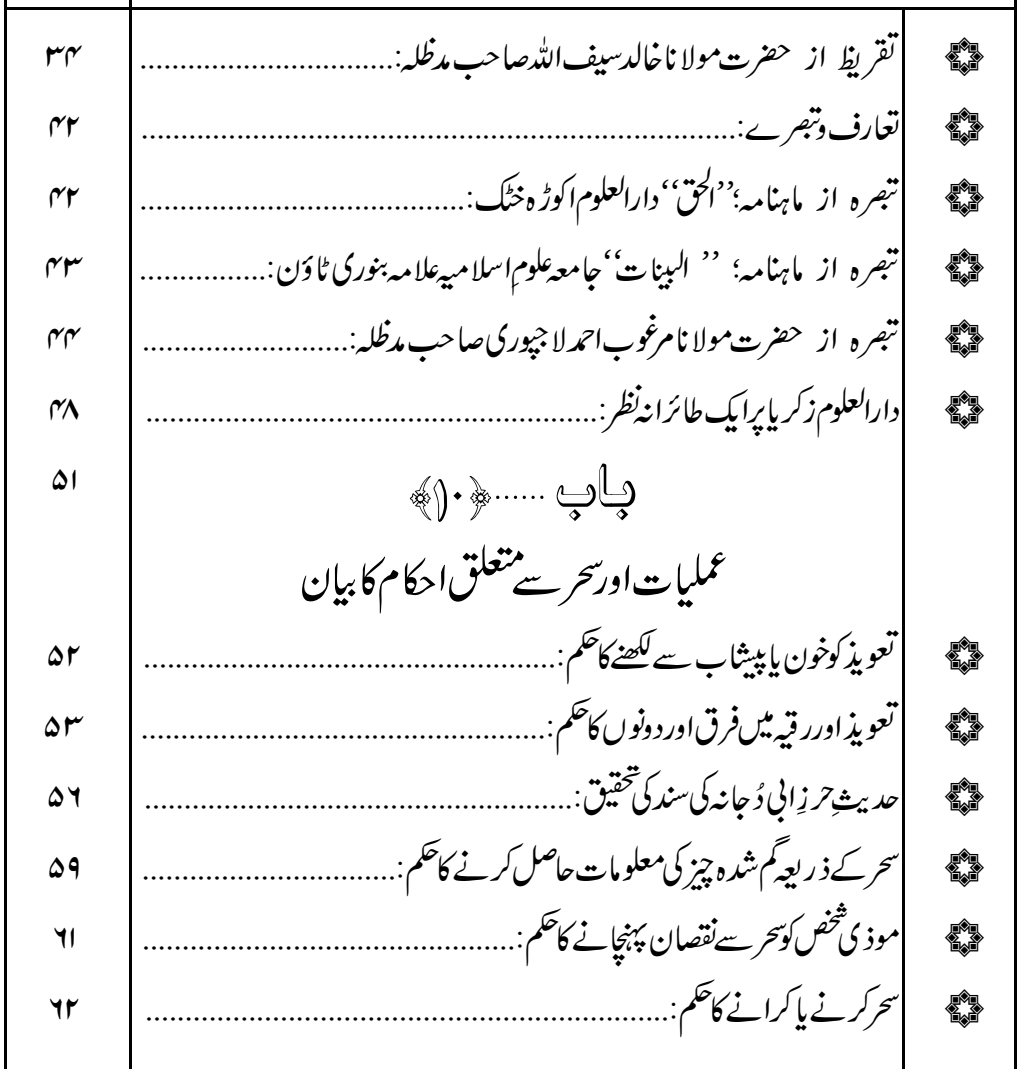 تقریظ از حضرت مولانا خالد سیف اللہ صاحب مدظلہ:................................ ۳۴
تعارف وتبصرے:................................................................ ۴۲
تبصرہ از ماہنامہ؛’’الحق‘‘ دارالعلوم اکوڑہ خٹک:................................ ۴۲
تبصرہ از ماہنامہ؛ ’’ البینات‘‘ جامعہ علومِ اسلامیہ علامہ بنوری ٹاؤن:................ ۴۳
تبصرہ از حضرت مولانا مرغوب احمد لاجپوری صاحب مدظلہ:.......................... ۴۴
دارالعلوم زکریا پر ایک طائرانہ نظر:................................................ ۴۸
باب ......﴿۱۰﴾ ۵۱
عملیات اور سحر سے متعلق احکام کا بیان
تعویذ کو خون یا پیشاب سے لکھنے کا حکم:................................................ ۵۲
تعویذ اور رقیہ میں فرق اور دونوں کا حکم:................................................ ۵۳
حدیثِ حرزِ ابی دُجانہ کی سند کی تحقیق:................................................ ۵۶
سحر کے ذریعہ گم شدہ چیز کی معلومات حاصل کرنے کا حکم:................................ ۵۹
موذی شخص کو سحر سے نقصان پہنچانے کا حکم:................................................ ۶۱
سحر کرنے یا کرانے کا حکم:................................................................ ۶۲